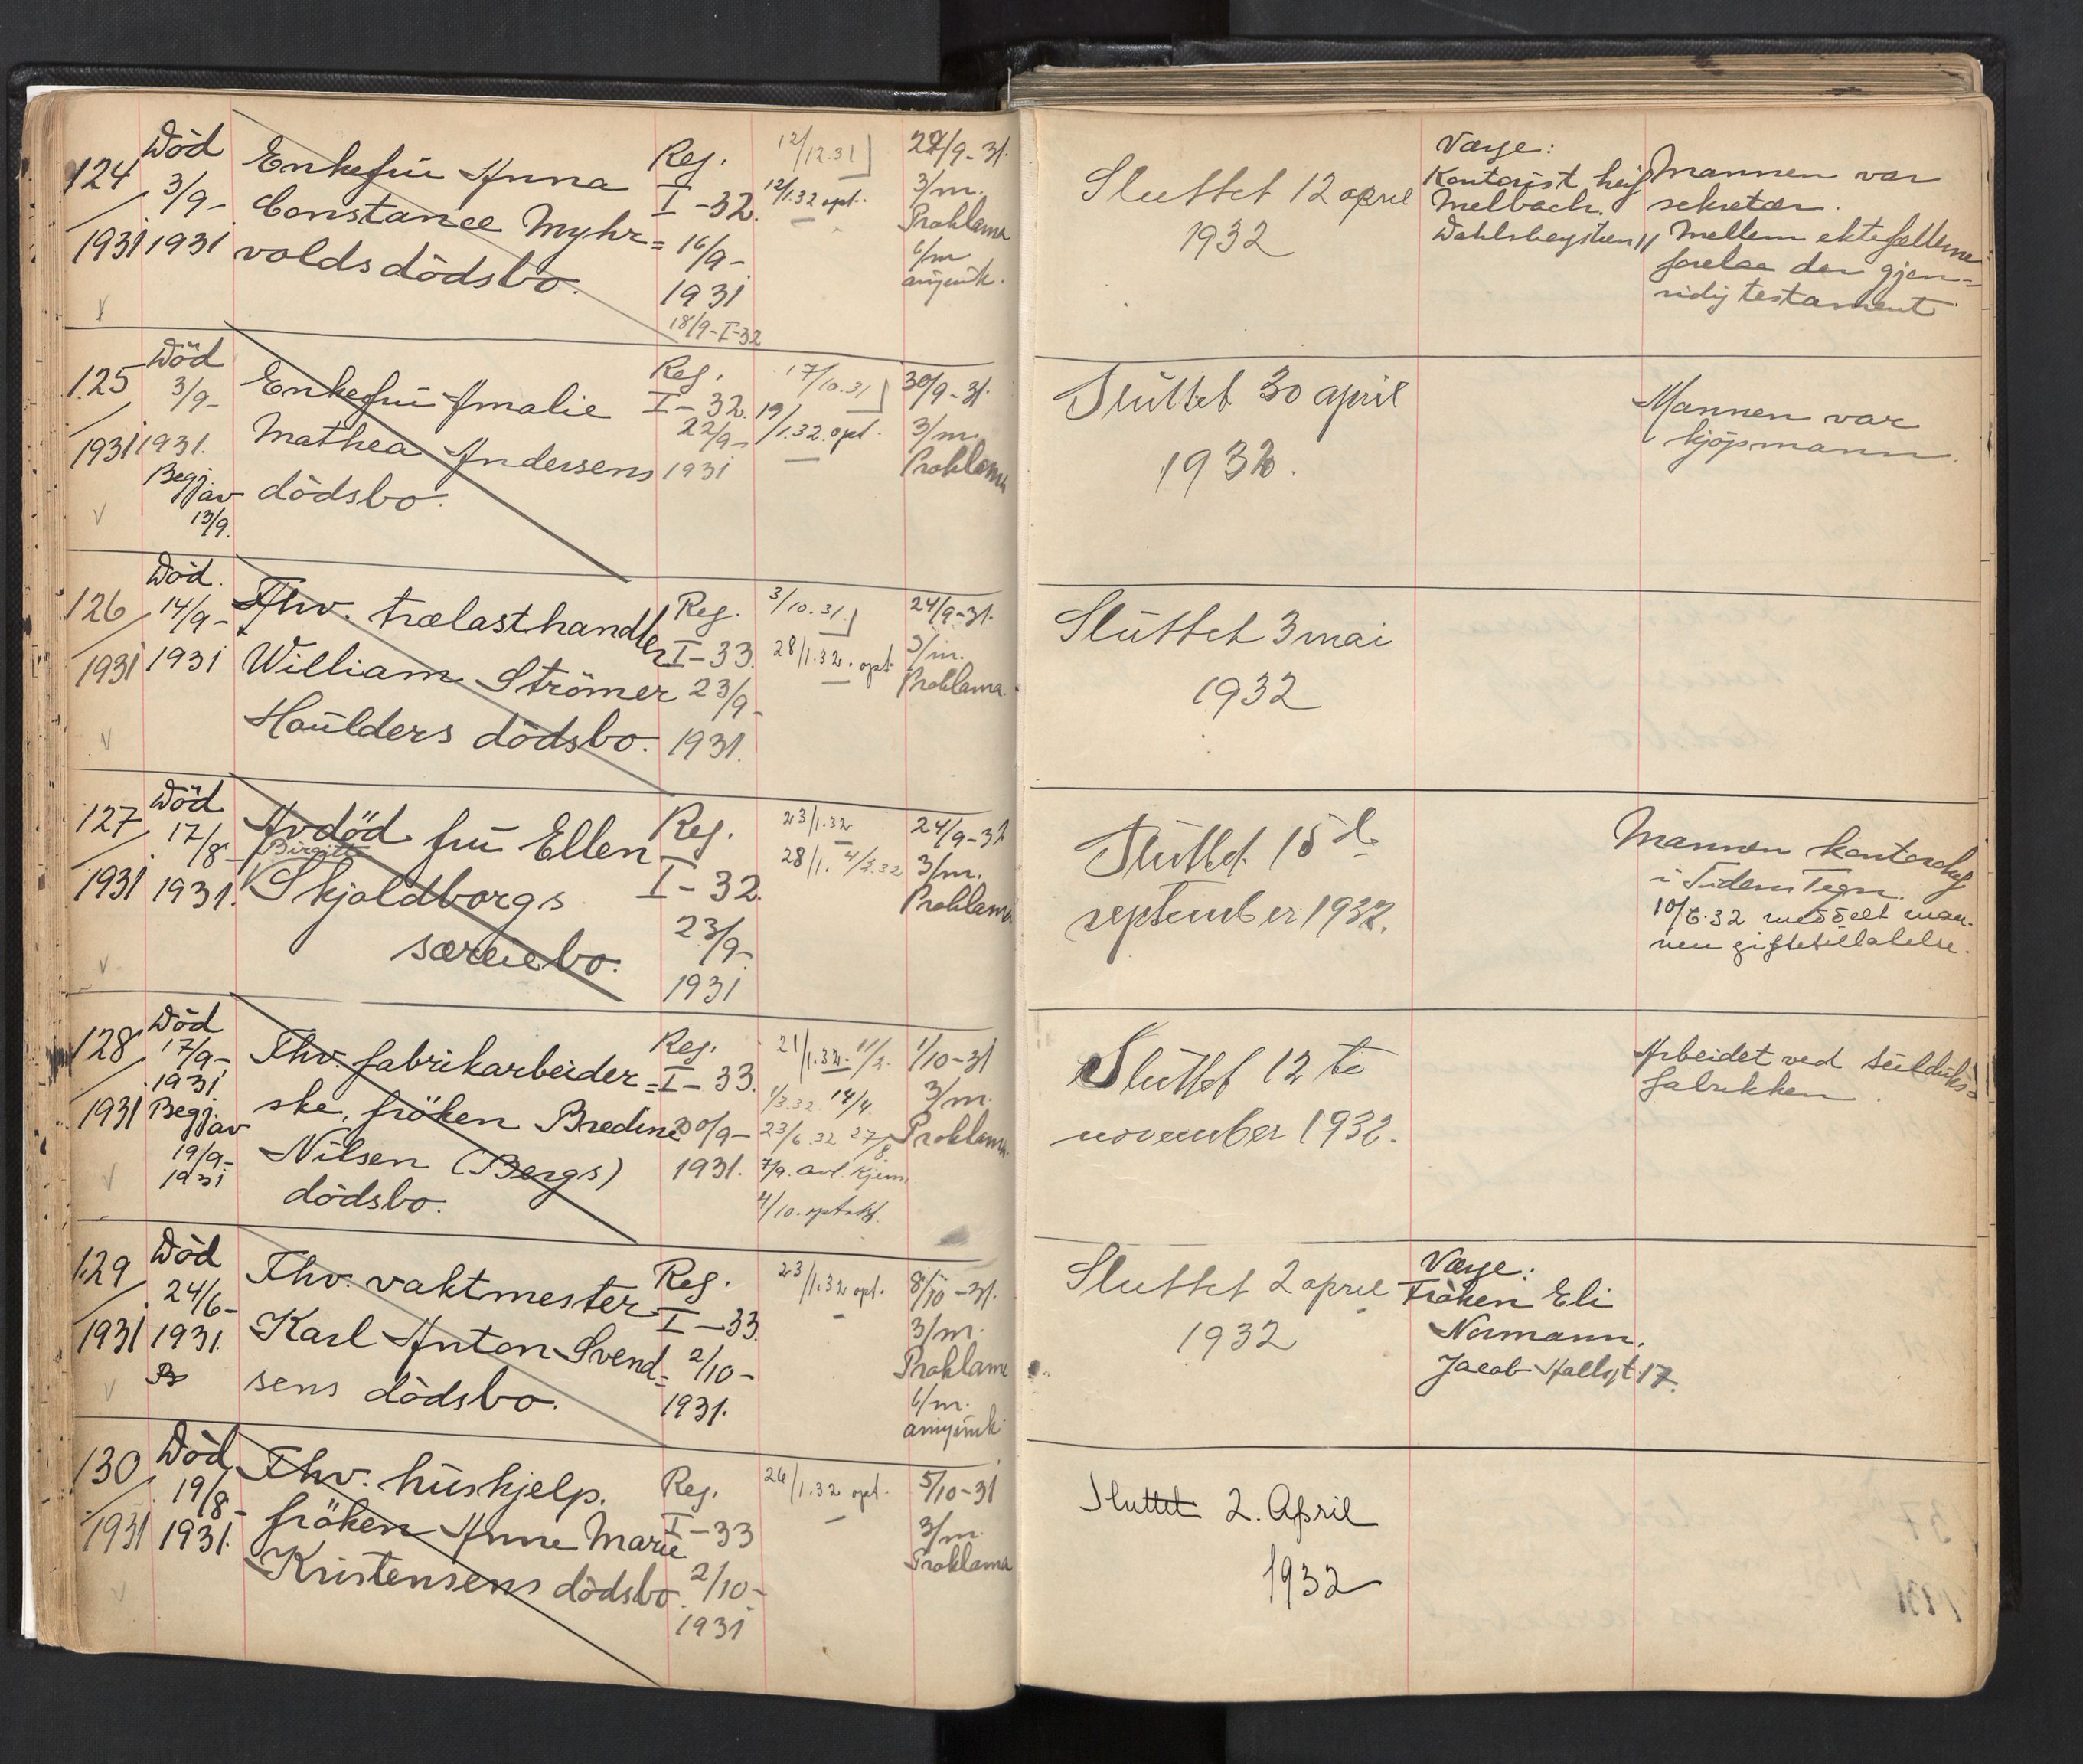 124
1931
Död
3/9-
1931
Enkefrü Anna
Constance Myhr=
voldsdödsbo.
Reg.
I-32.
16/9-
1931
18/9-I-32
12/12.31
12/1.32 opt.
3/m.
Proklama
6/m
Sluttet 12 april
1932
Verge:
Kontorist
Melbach.
Mannen var
sekretær.
Mellem ektefellerne
forelaa der gjen=
sidig testament
125
1931
Död
3/9-
1931.
Begj. av
13/9.
Enkefrü Amalie
Mathea Andersens
dödsbo.
Reg.
I-32.
22/9-
1931
17/10.31
19/1.32. opt.
30/9-31.
3/m.
Proklama
Slüttet 30 april
1932.
Mannen var
kjöpmann.
126
1931
Död.
14/9-
1931
Fhv. trælasthandler
William Strömer
Houlders dödsbo.
Reg.
I-33.
23/9-
1931.
3/10.31.
28/1.32. opt.
24/9-31.
3/m.
Proklama.
Slüttet 3 mai
1932
127
1931
Död
17/8-
1931.
Avdöd frü Ellen
Birgitte
Skjoldborgs
særeiebo.
Reg.
I-32.
23/9-
1931
23/1.32
28/1.
24/9-31
3/m.
Proklama
Slüttet 15 d.
september 1932.
Mannen kontorchef
i Tidens Tegn.
10/6.32 meddelt man-
nen giftetillatelse.
128
1931
Död
17/9-
1931
Begj. av
19/9-
1931
Fhv. fabrikarbeider=
ske, fröken Bredine
Nilsen (Bergs)
dödsbo.
Reg.
I-33.
30/9-
1931.
21/1.32. 11/2.
1/3.32. 14/4.
23/6.32 27/8.
4/10. optakt.
1/10-31
3/m.
Proklama.
Slüttet 12 te
november 1932.
Arbeidet ved
fabrikken.
129
1931
Död
24/6-
1931.
Fhv. vaktmester
Karl Anton Svend=
sens dödsbo.
Reg.
I-33.
2/10-
1931.
23/1.32 opt.
8/10-31.
3/m.
Proklama
6/m.
Sluttet 2 april
1932
Verge:
Fröken Eli
Normann.
Jacob Hallsgt. 17.
130
1931
Död
19/8-
1931.
Fhv. hüshjelp.
fröken Anne Marie
Kristensens dödsbo.
Reg.
I-33
2/10-
1931
26/1.32 opt.
5/10-31
3/m.
Proklama
Sluttet 2. April
1932